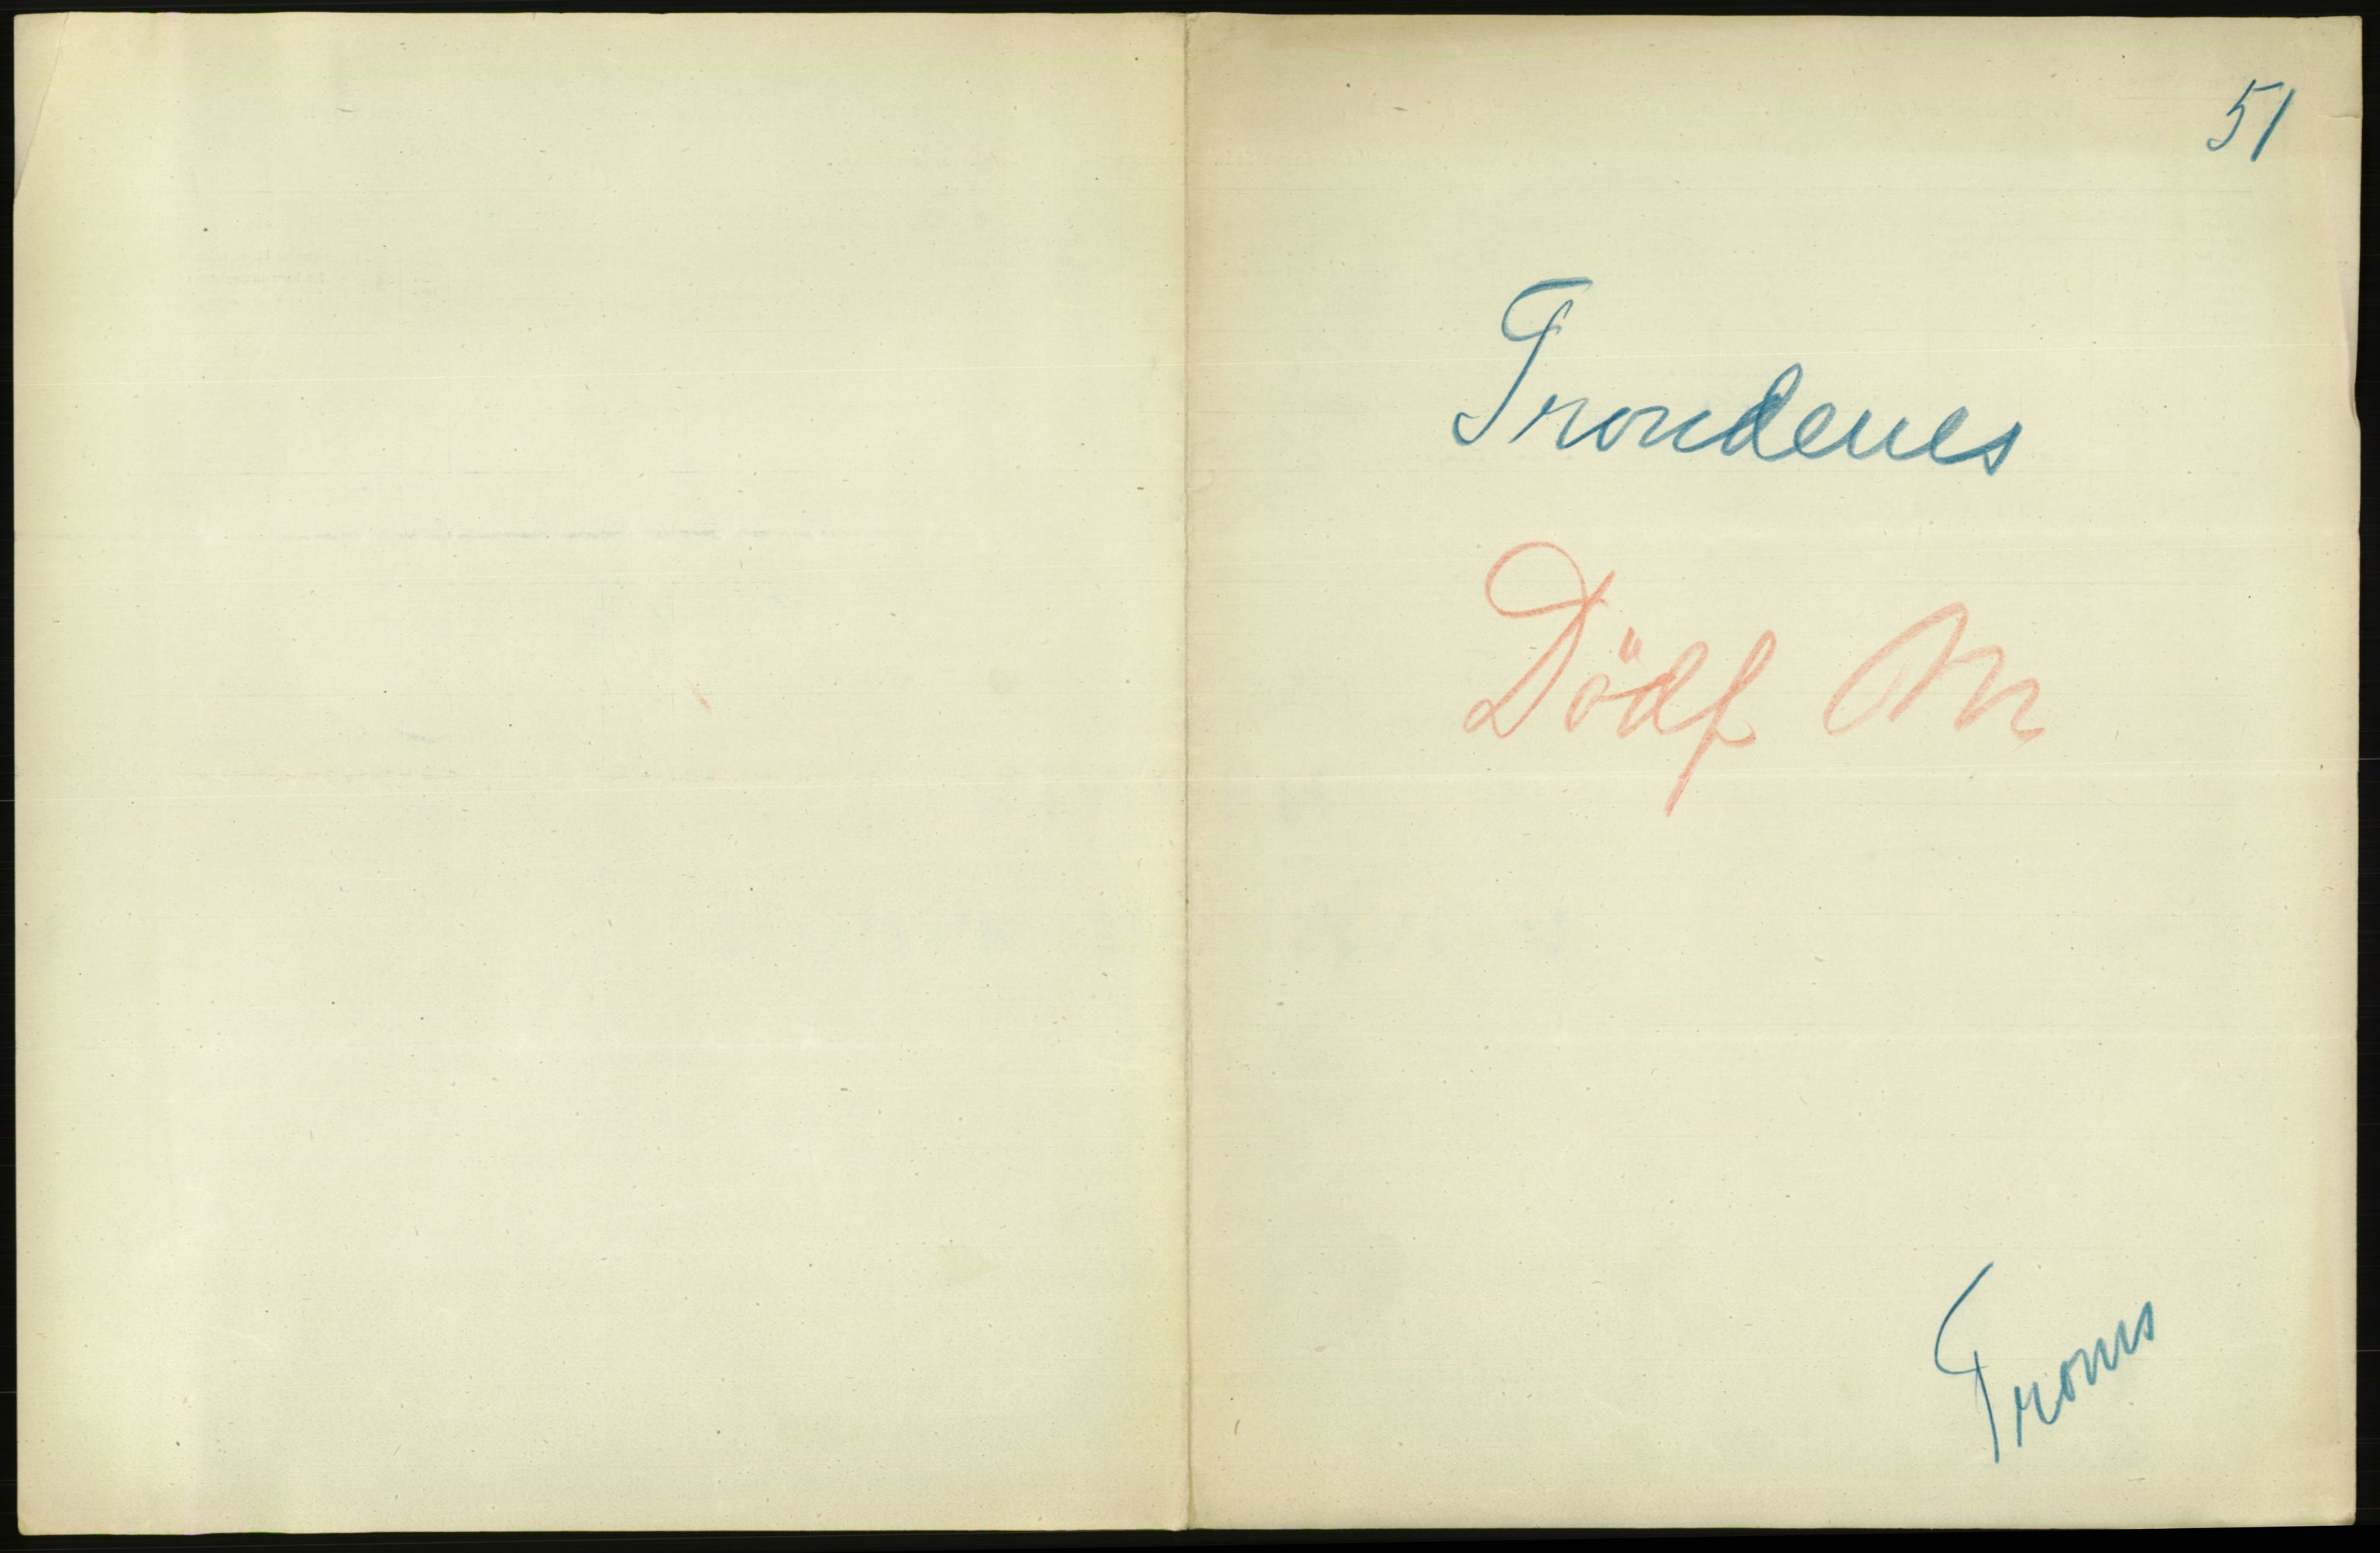 51
Trondenes
Dödf M
Troms